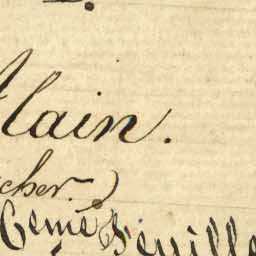 Alain.
cher.)
6eme feuille